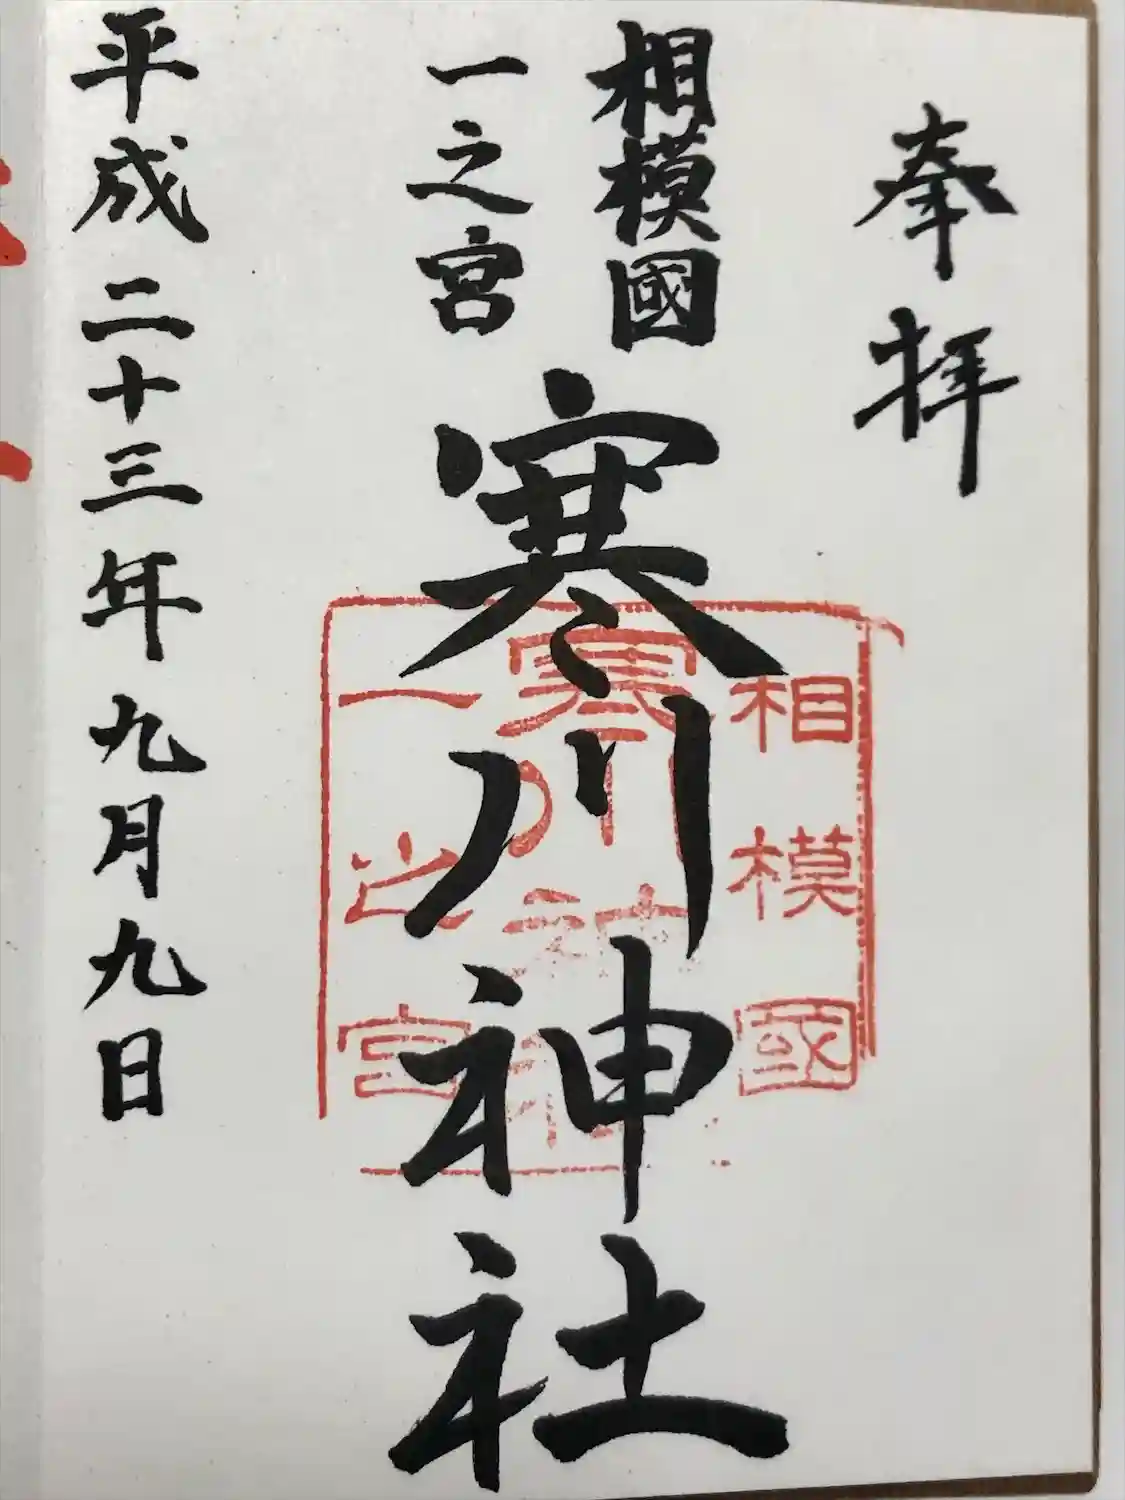 奉拝
相模國
一之宮
寒川神社
平成二十三年九月九日
相模國
寒川神社
一之宮